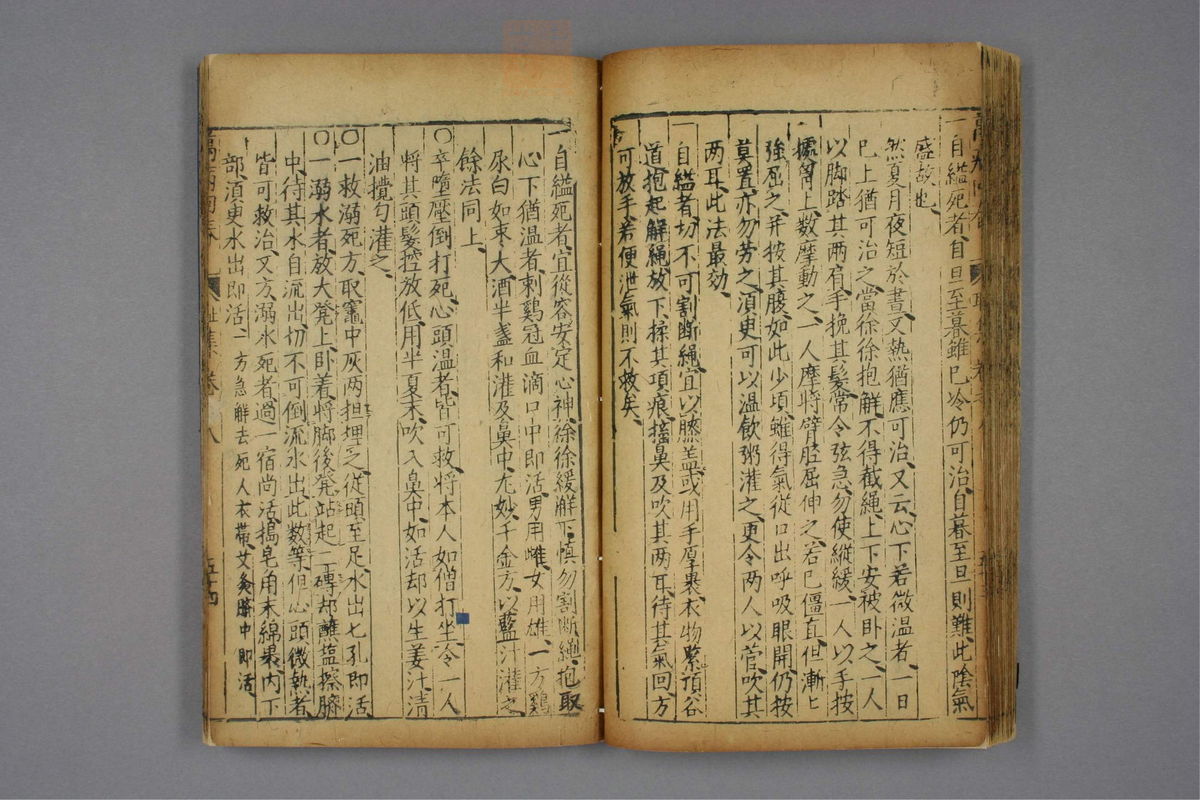 一自縊死者自旦至暮雖已冷仍可治自暮至旦則難此陰氣
盛故也
然夏月夜短於晝又熱猶應可治又云心下若微溫者一日
巳上猶可治之當徐徐抱觧不得截繩上下安被卧之一人
以脚踏其兩肩手挽其髮常令弦急勿使縱緩一人以手按
據胷上数摩動之一人摩捋臂脛屈伸之若巳僵直但漸上
強屈之并按其腹如此少頃雖得氣從口出呼吸眼開仍按
莫置亦勿劳之須臾可以温飲粥灌之更令两人以管吹其
两耳此法最効
一自縊者切不可割断繩宜以膝盖或用手厚裹衣物緊頂谷
道抱起解繩放下揉其項痕搐鼻及吹其两耳待其氣回方
可放手若便泄氣則不救矣
一自縊死者宜從容安定心神徐徐緩觧下慎勿割断繩抱取
心下猶温者刺鷄冠血滴口中即活男用雌女用雄一方鷄
尿白如枣大酒半盞和灌及鼻中尤妙千金方以藍汁灌之
餘法同上
〇卒墮壓倒打死心頭温者皆可救將本人如僧打坐令一人
將其頭髮控放低用半夏末吹入鼻中如活却以生姜汁清
油攪勻灌之
〇一救溺死方取竈中灰两担埋之從頭至足水出七孔即活
〇一溺水者放大凳上卧着將脚後凳站起二磚却蘸塩擦臍
中待其水自流出切不可倒流水出此数等但心頭微熱者
皆可救治又方溺水死者過一宿尚活搗皂角末綿裹内下
部須更水出即活一方急觧去死人衣帶艾灸臍中即活
萬病回春
卷八
五十四